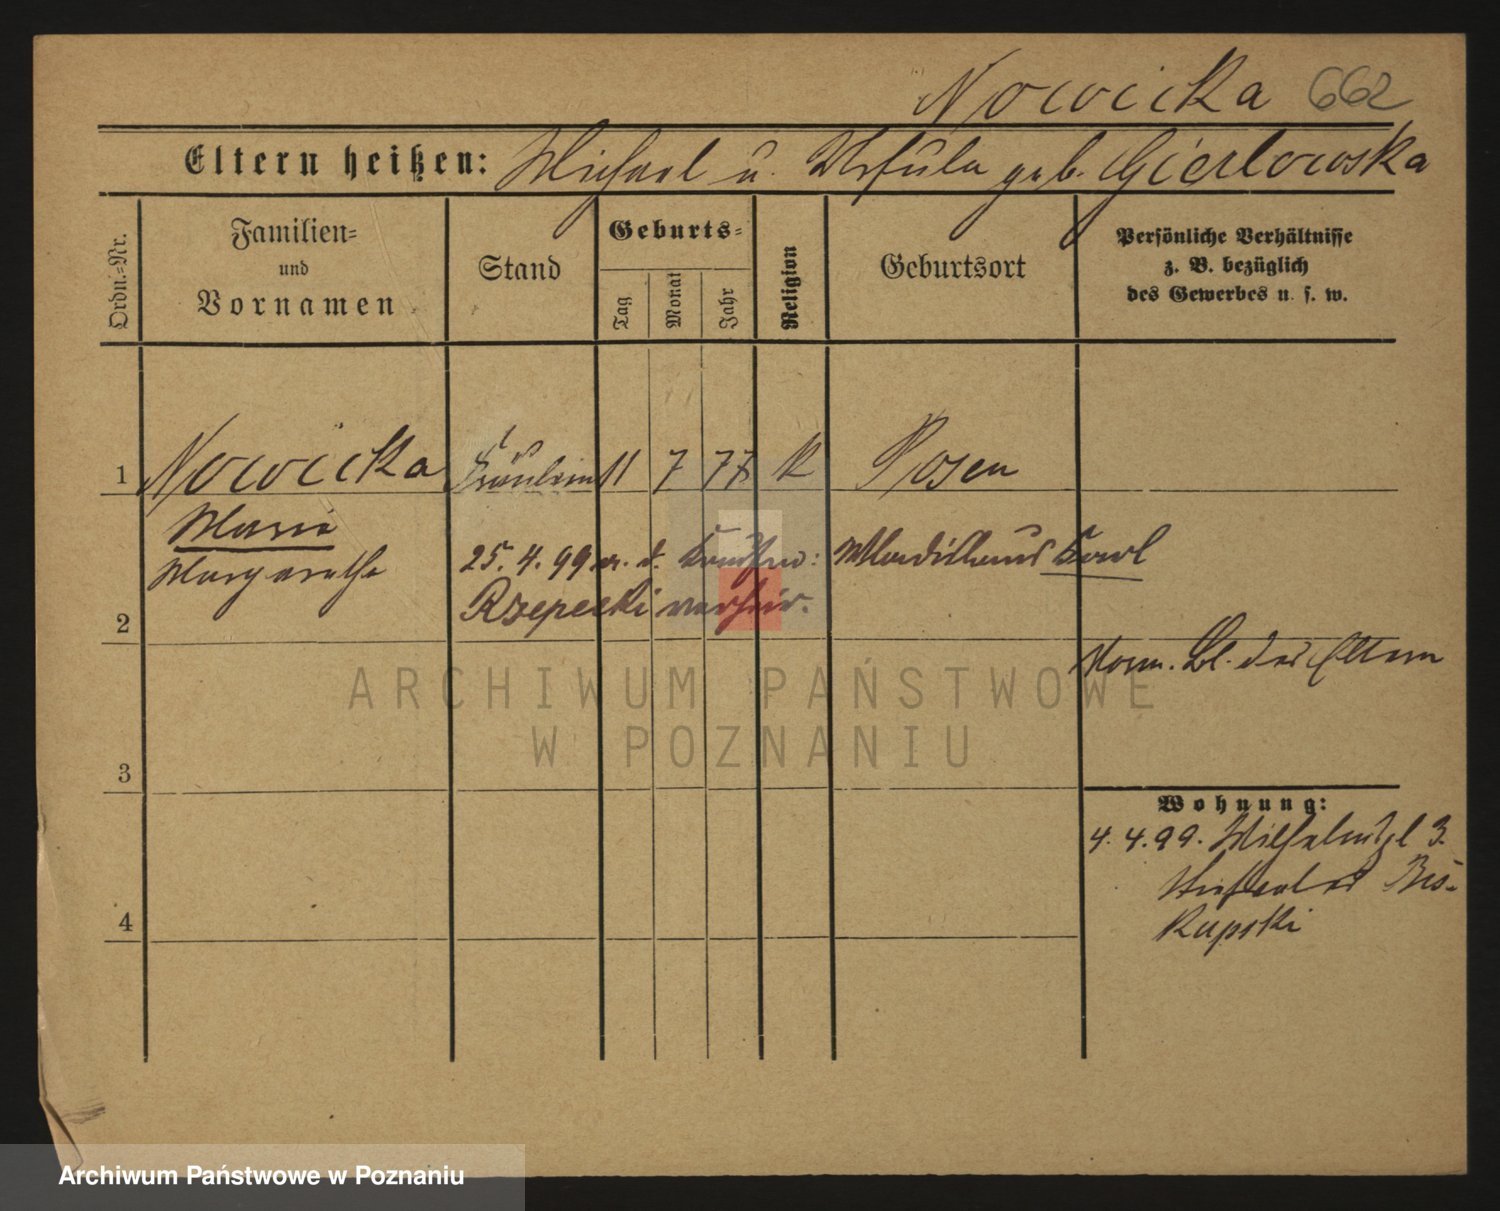 Nowicka 662
Eltern heißen: Michael u. Ursula geb. Gierlowska
Ordn.=Nr.
Familien=
und
Vornamen
Stand
Geburts=
Tag
Monat
Jahr
Religion
Geburtsort
Persönliche Verhältnisse
z. B. bezüglich
des Gewerbes u. s. w.
1 Nowicka Fräulein 11 7 77 K Posen
Maria
Margarethe
25. 4. 99 m. d. Kaufm: Wladislaus Karl
Rzepecki verheir.
2
Nom. Bl. der Eltern
ARCHIWUM PAŃSTWOWE
W POZNANIU
3
Wohnung:
4. 4. 99. Wilhelmspl 3.
Bis-
kupski
4
Archiwum Państwowe w Poznaniu